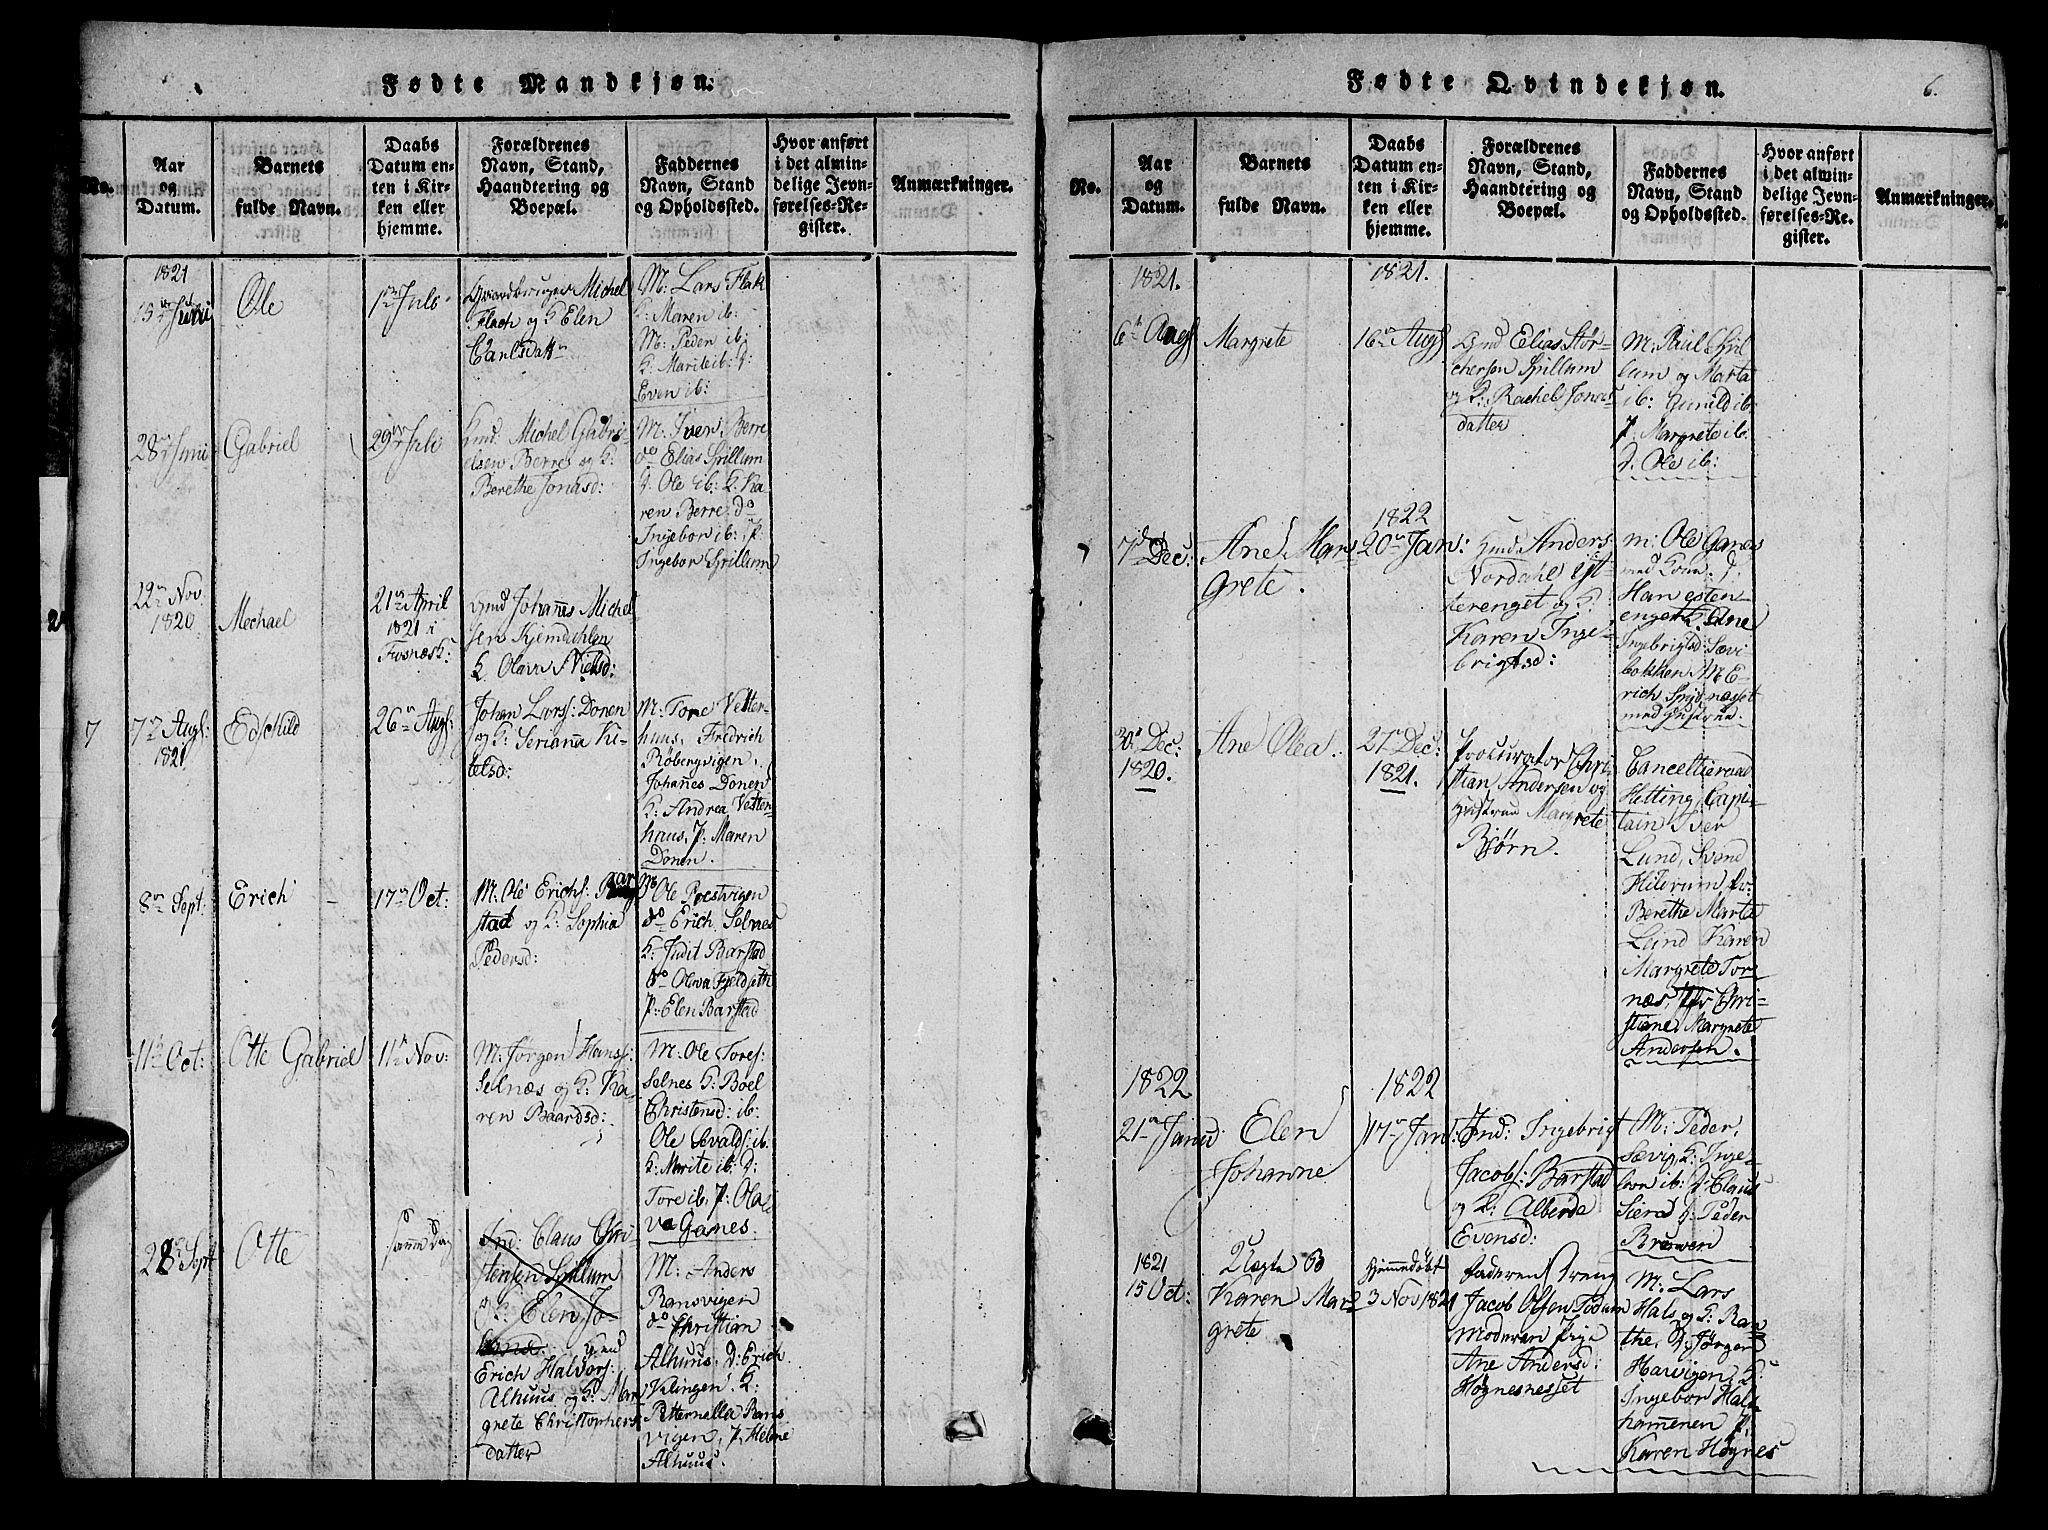 Fødte Mandkjøn.
No.
Aar
og
Datum.
Barnets
fulde Navn.
Daabs
Datum en-
ten i Kir-
ken eller
hjemme.
Forældrenes
Navn, Stand,
Haandtering og
Boepæl.
Faddernes
Navn, Stand
og Opholdssted.
Hvor anført
i det almin-
delige Jevn-
førelses-Re-
gister.
Anmærkninger.
1821
15de Juni
Ole
1ste Juli
Gaardbruger Michel
Flach og K Elen
Carlsdattr
M: Lars Flak
K: Maren ib:
M: Peder ib:
K: Marite ib: D:
Even ib:
28de Juni
Gabriel
29de Juli
Gmd: Michel Gabri-
elsen Berre og K:
Berethe Jonasd:
M: Iver Berre
do Elias Spillum
D: Ole ib: K: Ka-
ren Berre: do
Ingebor ib: P:
Ingebor Spillum
22de Nov:
1820
Mechael
21de April
1821 i
Fosnæs K:
Gmd Johanes Michel
sen Kjemdahlen
K Olava Nielsd:
7
7de Augs:
1821
Edschild
26de Augs:
Johan Larss: Donen
og K: Serianna Ki-
telsd:
M: Tore Vetter-
huus, Fredrich
Röbergvigen,
Johanes Donen
K: Andrea Vetter-
haus, P: Maren
Donen.
8de Sept:
Erich
17de Oct:
M: Ole Erichs: Bar
stad og K: Sophia
Pedersd:
M: Ole Prestvigen
do Erich Selnes
K: Judit Barstad
do Oleva Fjeldseth
P: Elen Barstad
11te Oct:
Otte Gabriel
11te Nov:
M: Jørgen Hanss:
Selnæs og K: Ka-
ren Baardsd:
M: Ole Tores:
Selnes K: Boel
Christensd: ib:
Ole Sevalds: ib:
K: Marite ib: D:
Tore ib, P: Ola
va Ganes:
28de Sept
Otte
samme dag
Ind: Claus Chri-
stensen Spillum
og K: Elen Jo-
Gmd
Erich Halvors:
Alhuus og K: Mar
grete Christophers
datter
M: Anders
Ransvigen
do Christian
Alhuus, D: Erich
Valingen, K:
Petternella Rans
vigen, P: Helene
Alhuus:
Fødte Qvindekjøn.
6.
No.
Aar
og
Datum.
Barnets
fulde Navn.
Daabs
Datum en-
ten i Kir-
ken eller
hjemme.
Forældrenes
Navn, Stand,
Haandtering og
Boepæl.
Faddernes
Navn, Stand
og Opholdssted.
Hvor anført
i det almin-
delige Jevn-
førelses-Re-
gister.
Anmærkninger.
1821.
1821.
6te Augs
Margrete
16de Augs
Gmd Elias Stor-
chersen Spillum
og K: Rachel Jonas
datter
M: Paul Spil
lum og Marta
ib: Gunild ib:
P: Margrete ib:
D: Ole ib:
1822
7de Dec:
Ane Mar
grete:
20de Jan:
Gmd: Anders
Nordahl Øst-
terenget og K:
Karen Inge-
brigtsd:
M: Ole Ganes
med Kone: D:
Han esten
enget K: Ane
Ingebrigtsd: Sævi
bakken M: E-
rich Spydnæset
med Hustrue.
30de Dec:
1820.
Ane Olea.
27de Dec:
1821.
Procurator Chri
stian Andersen og
Hustrue Margrete
Bjørn.
Cancellieraad
Hetting, Capi-
tain Iver
Lund, Svend
Hilerum, Fr:
Berethe Marta
Lund Karen
Margrete Tor-
næs, Jfr Chri-
stiane Margrete
Andersen.
1822
1822
21de Janu
Elen
Johanne
17de Jan:
Ind: Ingebrigt
Jacobs: Barstad
og K: Alberda
Evensd:
M: Peder
Sævig, K: Inge-
bron ib: D: Claus
Siera D: Peder
Brauven
1821
15 Oct:
2 Uægte B
Karen Mar-
grete
Hjemmedøbt
3 Nov 1821
Faderen Dreng
Jacob Olsen Fodum
Moderen Pige
Ane Andersd:
Høgnesnesset
M: Lars
Hals og K: Ran-
the, D: Jørgen
Harvigen, K:
Ingebor Hals-
hamenen P:
Karen Høgnes